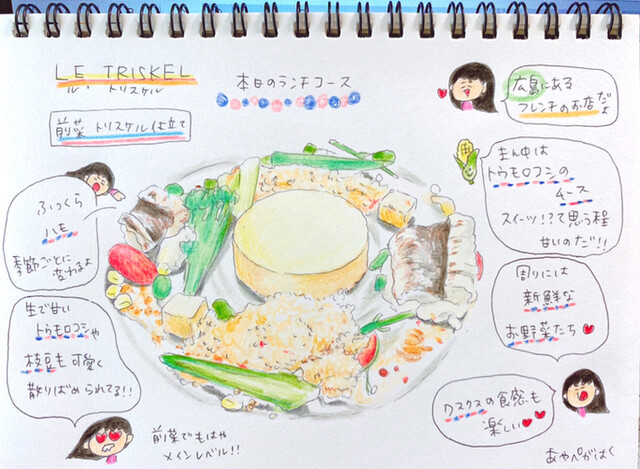 LE TRISKEL
ル・トリスケル
本日のランチコース
前菜 トリスケル仕立て
広島にある
フレンチのお店だよ
まん中は
トウモロコシの
ムース
スイーツ!?て思う程
甘いのだ!!
ふっくら
ハモ
季節ごとに
変わるよ
周りには
新鮮な
お野菜たち
生で甘い
トウモロコシや
枝豆も可愛く
散りばめられてる!!
クスクスの食感も
楽しい
前菜でもはや
メインレベル!!
あやぺがはく